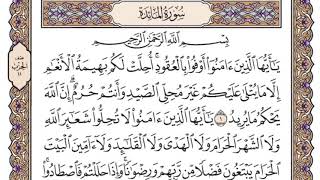 سُورَةُ المَائِدَة
بِسْمِ اللَّهِ الرَّحْمَٰنِ الرَّحِيمِ
يَٰٓأَيُّهَا ٱلَّذِينَ ءَامَنُوٓا۟ أَوْفُوا۟ بِٱلْعُقُودِ ۚ أُحِلَّتْ لَكُم بَهِيمَةُ ٱلْأَنْعَٰمِ
إِلَّا مَا يُتْلَىٰ عَلَيْكُمْ غَيْرَ مُحِلِّى ٱلصَّيْدِ وَأَنتُمْ حُرُمٌ ۗ إِنَّ ٱللَّهَ
يَحْكُمُ مَا يُرِيدُ ١ يَٰٓأَيُّهَا ٱلَّذِينَ ءَامَنُوا۟ لَا تُحِلُّوا۟ شَعَٰٓئِرَ ٱللَّهِ
وَلَا ٱلشَّهْرَ ٱلْحَرَامَ وَلَا ٱلْهَدْىَ وَلَا ٱلْقَلَٰٓئِدَ وَلَآ ءَآمِّينَ ٱلْبَيْتَ
ٱلْحَرَامَ يَبْتَغُونَ فَضْلًا مِّن رَّبِّهِمْ وَرِضْوَٰنًا ۚ وَإِذَا حَلَلْتُمْ فَٱصْطَادُوا۟ ۚ